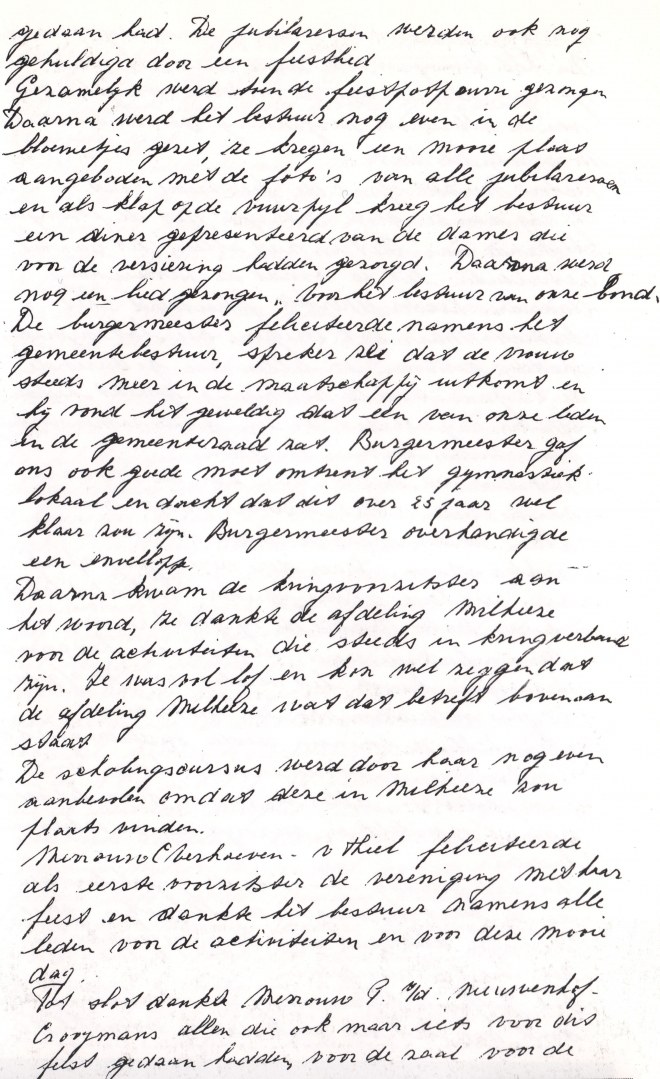 gedaan had. De jubilaressen werden ook nog
gehuldigd door een feestlied
Gezamelyk werd toen de feestpotpourri gezongen
Daarna werd het bestuur nog even in de
bloemetjes gezet, ze kregen een mooie plaat
aangeboden met de foto's van alle jubilaressen
en als klap op de vuurpyl kreeg het bestuur
een diner gepresenteerd van de dames die
voor de versiering hadden gezorgd. Daarna werd
nog een lied gezongen, voor het bestuur van onze bond.
De burgermeester feliciteerde namens het
gemeentebestuur, spreker zei dat de vrouw
steeds meer in de maatschappij uitkomt en
hij vond het geweldig dat een van onze leden
in de gemeenteraad zat. Burgermeester gaf
ons ook goede moet omtrent het gymnastiek-
lokaal en dacht dat dit over 25 jaar wel
klaar zou zijn. Burgermeester overhandigde
een envellopp.
Daarna kwam de kringvoorzitster aan
het woord, ze dankte de afdeling Milheeze
voor de activiteiten die steeds in kringverband
zijn. Ze was vol lof en kon wel zeggen dat
de afdeling Milheeze wat dat betreft bovenaan
staat
De scholingscursus werd door haar nog even
aanbevolen omdat deze in Milheeze zou
plaats vinden.
Mevrouw C Verhoeven - v Thiel feliciteerde
als eerste voorzitster de vereniging met haar
feest en dankte het bestuur namens alle
leden voor de activiteiten en voor deze mooie
dag.
Tot slot dankte Mevrouw P. v/d. Nieuwenhof-
Crooymans allen die ook maar iets voor dit
feest gedaan hadden, voor de zaal voor de